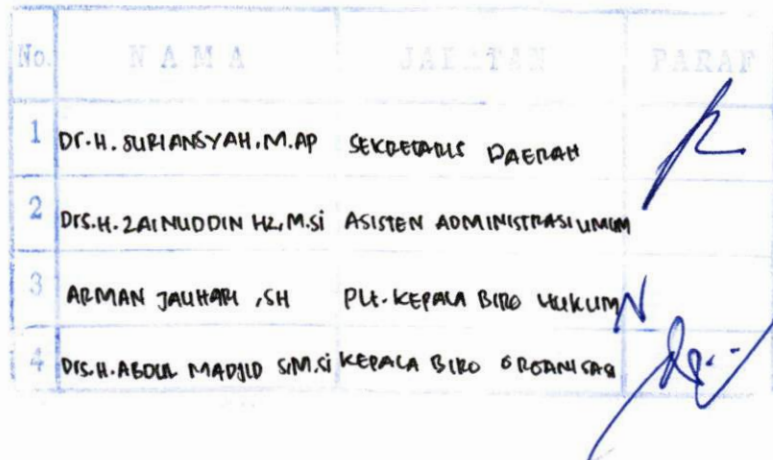 No. NAMA JABATAN PARAF
1 Dr. H. SURIANSYAH, M.AP SEKRETARIS DAERAH
2 Drs. H. ZAINUDDIN HZ, M.Si ASISTEN ADMINISTRASI UMUM
3 ARMAN JAUHARI, SH Plt. KEPALA BIRO HUKUM
4 Drs. H. ABDUL MADJID S, M.Si KEPALA BIRO ORGANISASI